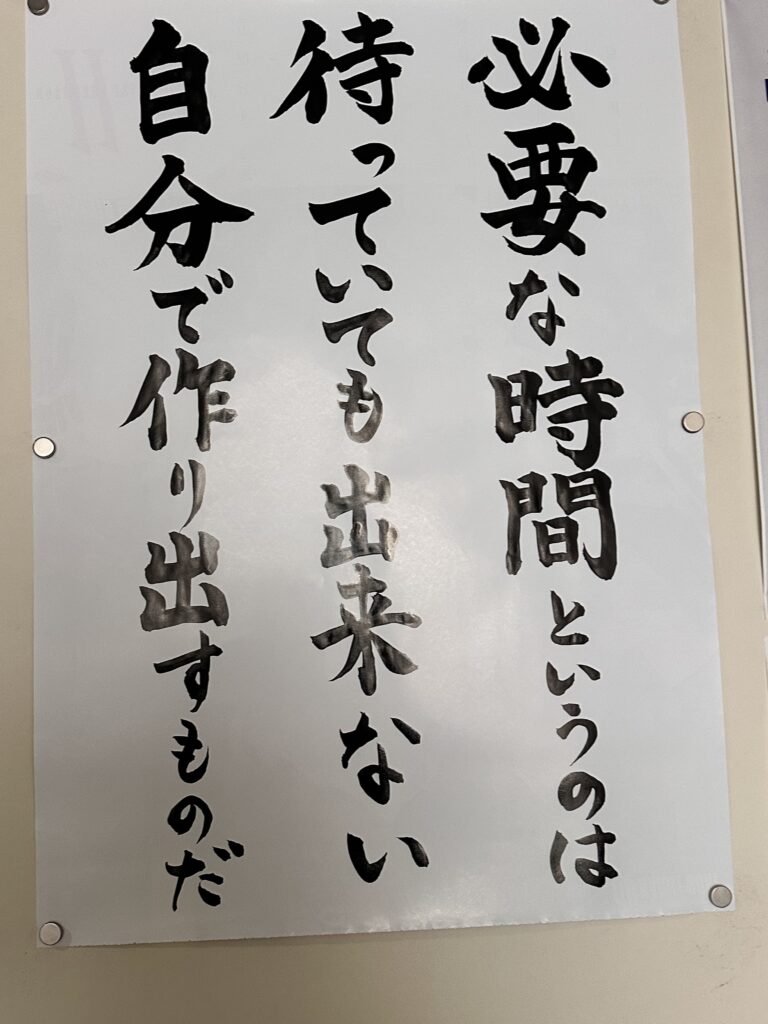 必要な時間というのは
待っていても出来ない
自分で作り出すものだ